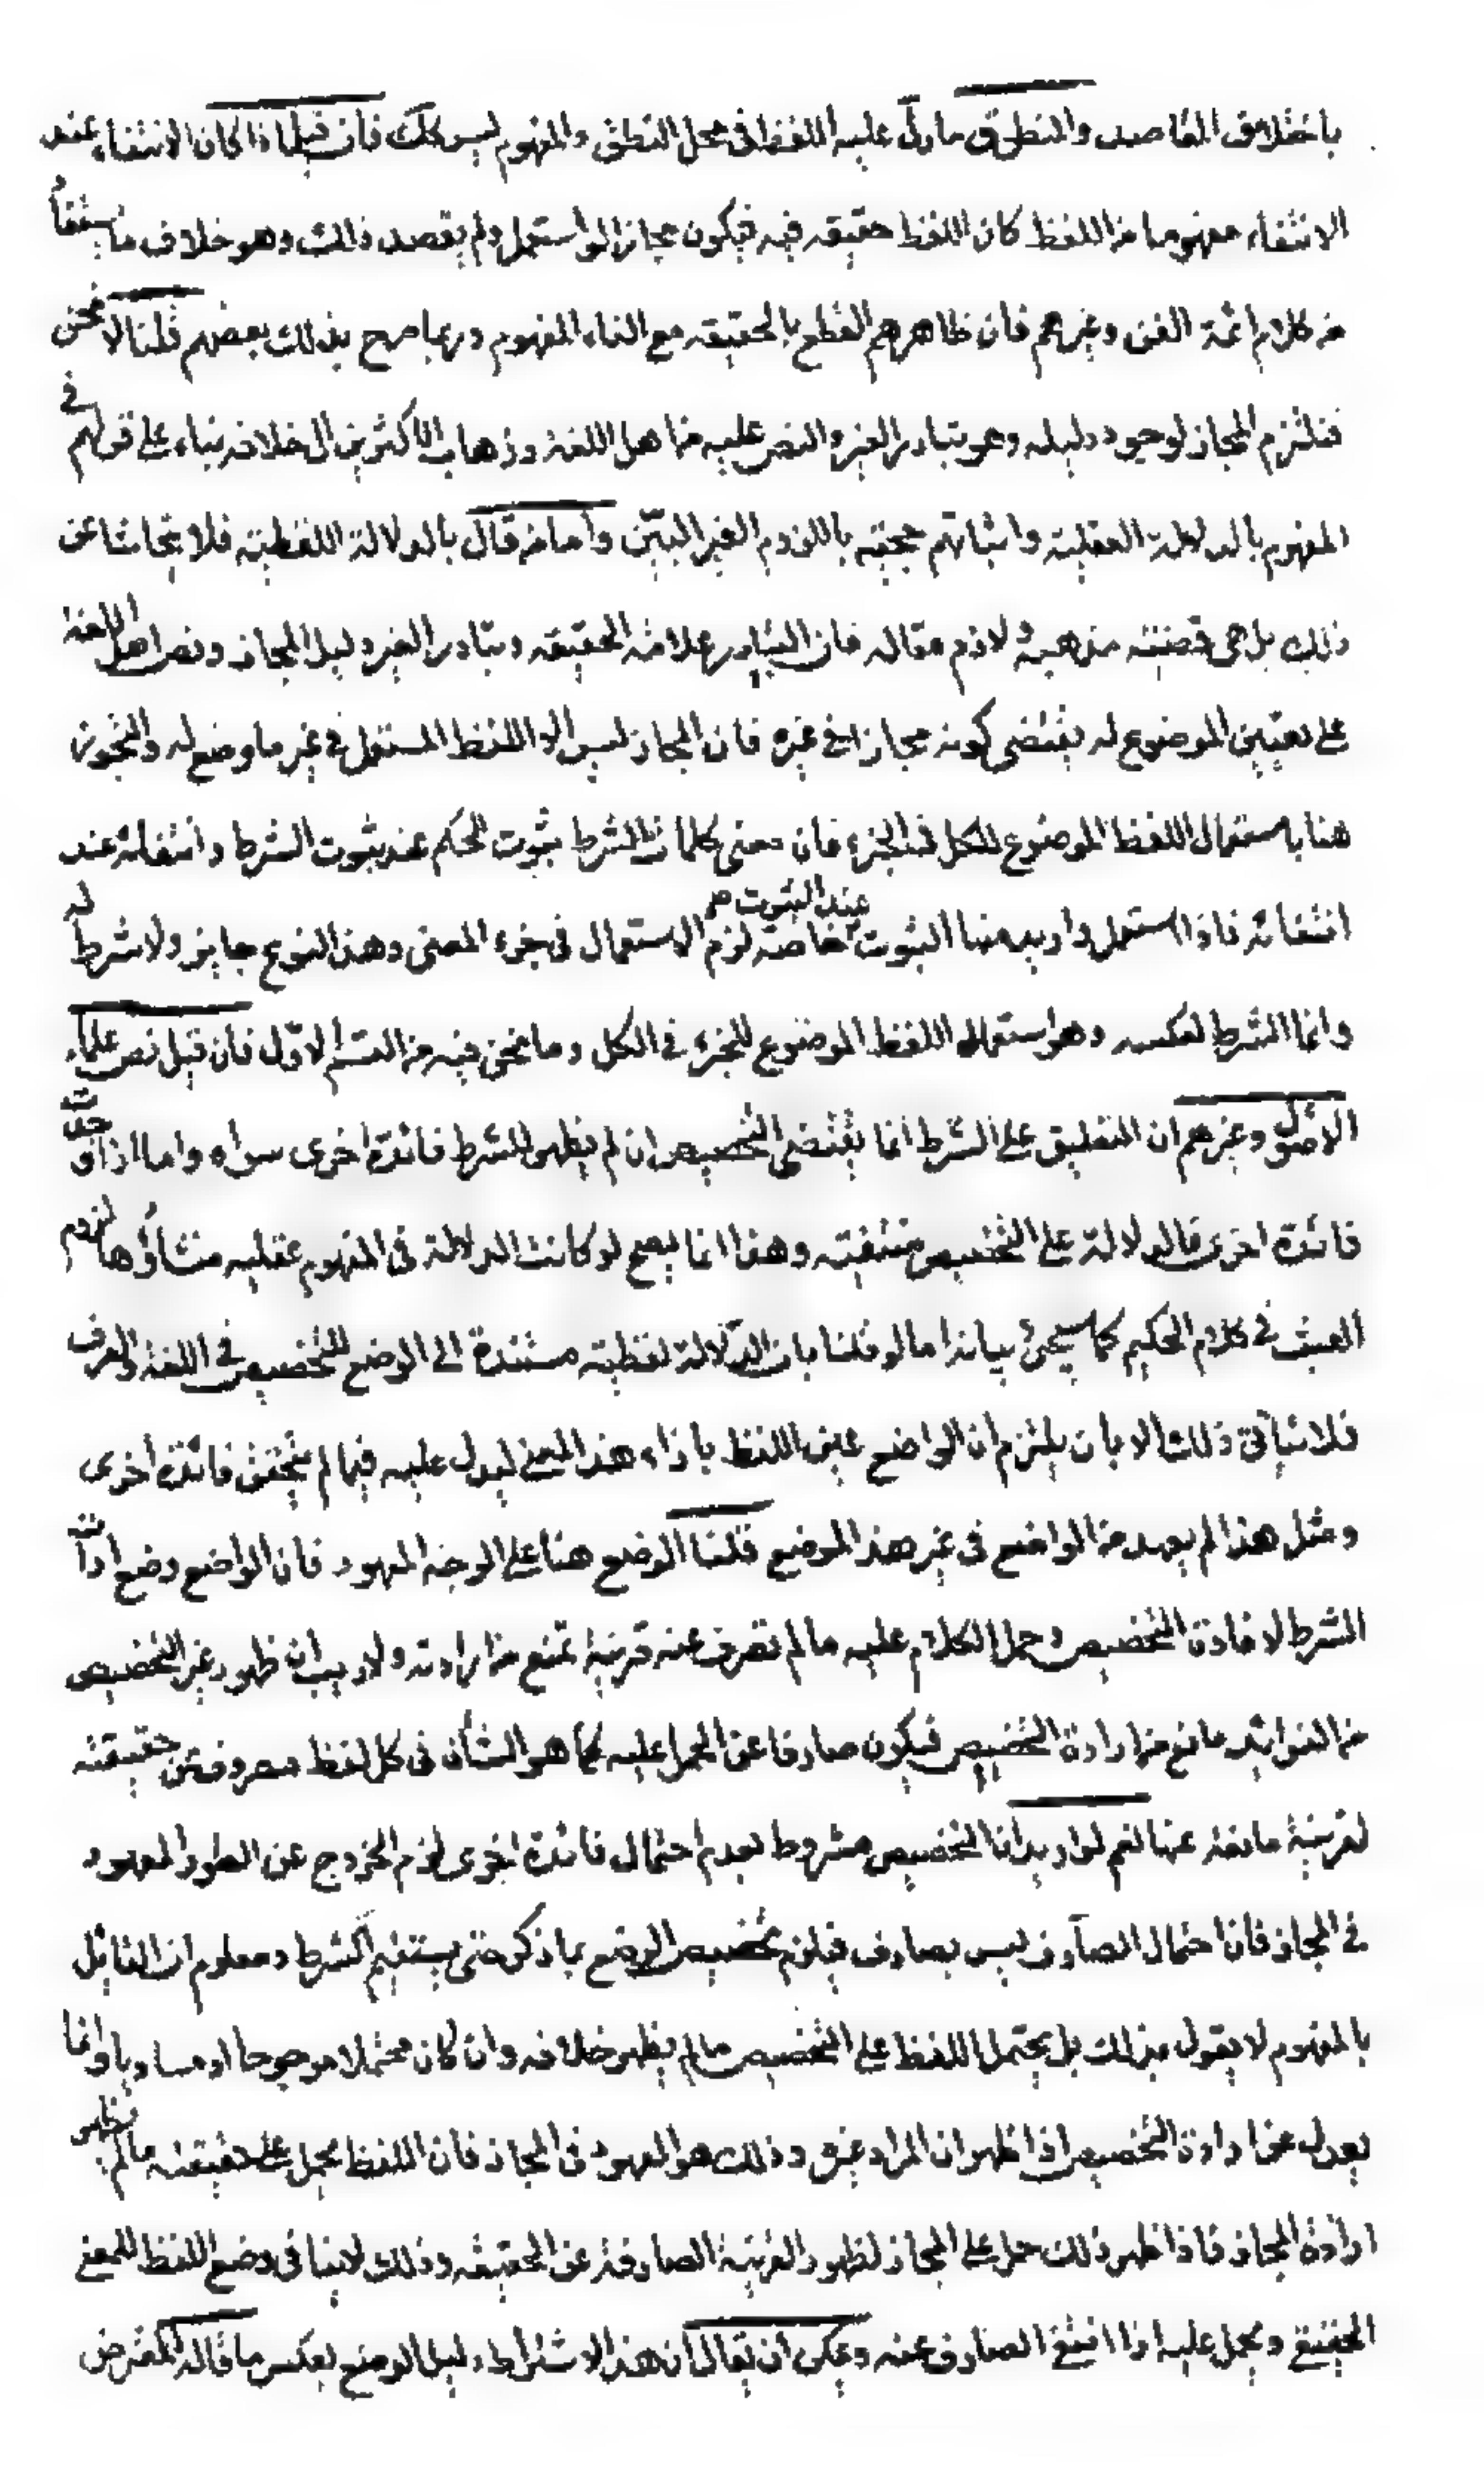 باختلاف المقاصد والمنطوق ما دل عليه اللفظ فى محل النطق والمفهوم ليس كك فان قيل اذا كان الانتفاء عند
الانتفاء مفهوما من اللفظ كان اللفظ حقيقه فيه فيكون مجازا لو استعمل ولم يقصد ذلك وهو خلاف ما يستفاد
من كلام ائمة الفن وغيرهم فان ظاهرهم القطع بالحقيقه مع الغاء المفهوم وربما صرح بذلك بعضهم قلنا لا نحن
فنلتزم المجاز لوجود دليله وهو تبادر الغير والنص عليه من اهل اللغة وذهاب الاكثرين الى خلافه بناء على قولهم فى
المفهوم بالدلالة العقلية واثباتهم حجيته باللزوم الغير البيّن واما من قال بالدلالة اللفظيته فلا يتحاشا عن
ذلك بل هى قضيته مذهبه ولازم مقاله فان التبادر علامة الحقيقه وتبادر الغير دليل المجاز ونص اهل اللغة
على تعيين الموضوع له يقتضى كونه مجازا فى غيره فان المجاز ليس الا اللفظ المستعمل فى غير ما وضع له والتجوز
هنا باستعمال اللفظ الموضوع للكل فى الجزء فان معنى كلمات الشرط ثبوت الحكم عند ثبوت الشرط وانتفائه عند
انتفائه فاذا استعمل واريد منها الثبوت عند الثبوت خاصة لزم الاستعمال فى جزء المعنى وهذا النوع جايز ولا شرط له
وانما الشرط لعكسه وهو استعمال اللفظ الموضوع للجزء فى الكل وما نحن فيه من القسم الاوّل فان قيل نص علماء
الاصول وغيرهم ان التعليق على الشرط انما يقتضى التخصيص ان لم يظهر للشرط فائدة اخرى سواه واما اذا وجدت
فائدة اخرى فالدلالة على التخصيص منتفيته وهذا انما يصح لو كانت الدلالة فى المفهوم عقليه منشاؤها لزوم
العبث فى كلام الحكيم كما سيجئ بيانه اما لو قلنا بان الدلالة لفظيته مستندة الى الوضع للتخصيص فى اللغة والعرف
فلا يتاتى ذلك الا بان يلتزم ان الواضع عين اللفظ بازاء هذا المعنى ليدل عليه فيما لم يتحقق فائدة اخرى
ومثل هذا لم يعهد من الواضع فى غير هذا الموضع قلنا الوضع هنا على الوجه المعهود فان الواضع وضع ادات
الشرط لافادة التخصيص وحمل الكلام عليه ما لم تصرف عنه قرينة تمنع من ارادته ولا ريب ان ظهور غير التخصيص
من الفوائد مانع من ارادة التخصيص فيكون صارفا عن الحمل عليه كما هو الشأن فى كل لفظ مصروف عن حقيقته
لقرينة مانعة عنها نعم لو اريد ان التخصيص مشروط بعدم احتمال فائدة اخرى لزم الخروج عن الطور المعهود
فى المجاز فان احتمال الصارف ليس بصارف فيلزم تخصيص الوضع بما ذكر حتى يستقيم الشرط ومعلوم ان القائل
بالمفهوم لا يقول بذلك بل يحتمل اللفظ على التخصيص ما لم يظهر خلافه وان كان محتملا مرجوحا او مساويا وانما
يعدل عن ارادة التخصيص اذا ظهر ان المراد غيره وذلك هو المعهود فى المجاز فان اللفظ يحمل على حقيقته ما لم يظهر
ارادة المجاز فاذا ظهر ذلك حمل على المجاز لظهور القرينة الصارفة عن الحقيقه وذلك لا ينافى وضع اللفظ للمعنى
الحقيقى ويحمل عليه اذا انتفى الصارف عنه ويمكن ان يقال ان هذا الاشتراط دليل الوضع بعكس ما قاله المعترض